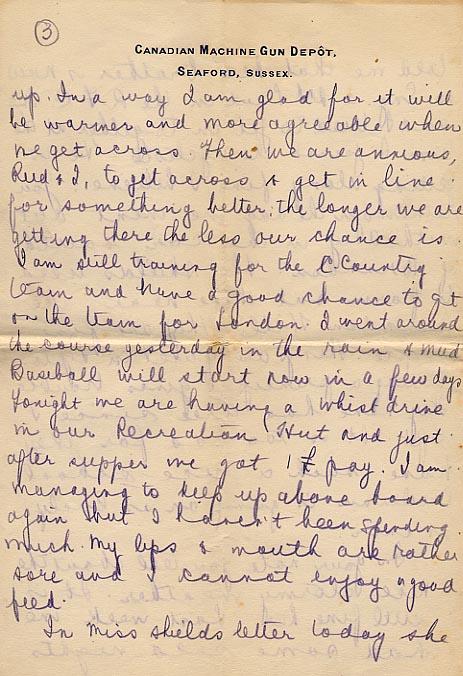 3
CANADIAN MACHINE GUN DEPÔT,
SEAFORD, SUSSEX.
up. In a way I am glad for it will
be warmer and more agreeable when
we get across. Then we are anxious,
& I, to get across & get in line
for something better; the longer we are
getting there the less our chance is.
I am still training for the C. Country
team and have a good chance to get
on the team for London. I went around
the course yesterday in the rain & mud
Baseball will start now in a few days
Tonight we are having a whist drive
in our Recreation Hut and just
after supper we got 1 £ pay. I am
managing to keep up above board
again but I haven't been spending
much. My lips & mouth are rather
sore and I cannot enjoy a good
feed.
In Miss Shields letter today she